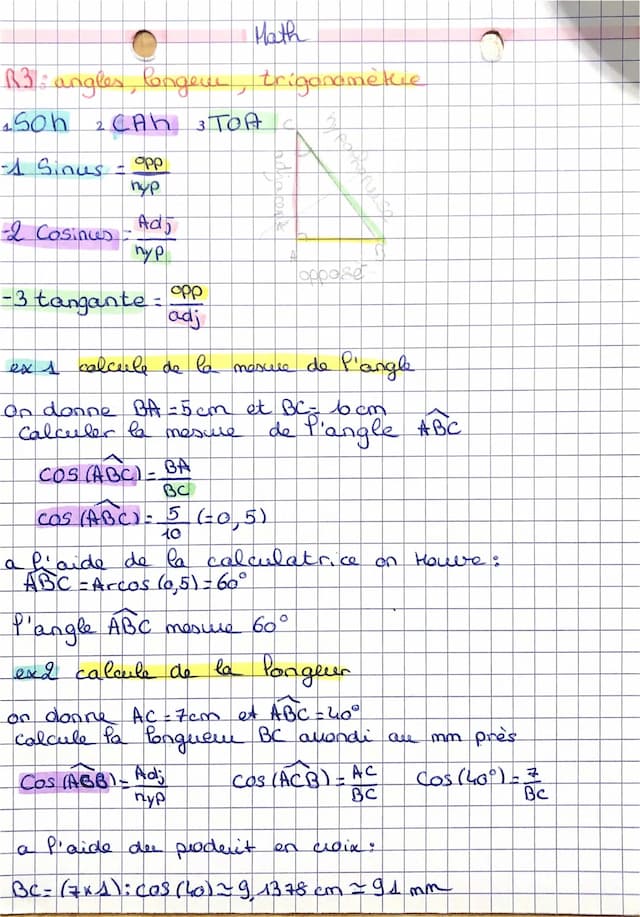 Math
R3: angles, longeur, trigonométrie
1 SOh 2 CAh 3 TOA
-1 Sinus = opp/hyp
-2 Cosinus = Adj/hyp
-3 tangante = opp/adj
C
hypoténuse
adjacent
A
B
opposé
ex 1 calcule de la mesure de l'angle
On donne BA = 5 cm et BC = 10 cm
Calculer la mesure de l'angle ABC
cos (ABC) = BA/BC
cos (ABC) = 5/10 (=0,5)
a l'aide de la calculatrice on trouve :
ABC = Arcos (0,5) = 60°
l'angle ABC mesure 60°
ex2 calcule de la longeur
on donne AC = 7cm et ABC = 40°
calcule la longueur BC arrondi au mm près
Cos (ACB) = Adj/hyp cos (ACB) = AC/BC Cos (40°) = 7/BC
a l'aide du produit en croix :
BC = (7 x 1) : cos (40) ≃ 9,1378 cm ≃ 91 mm